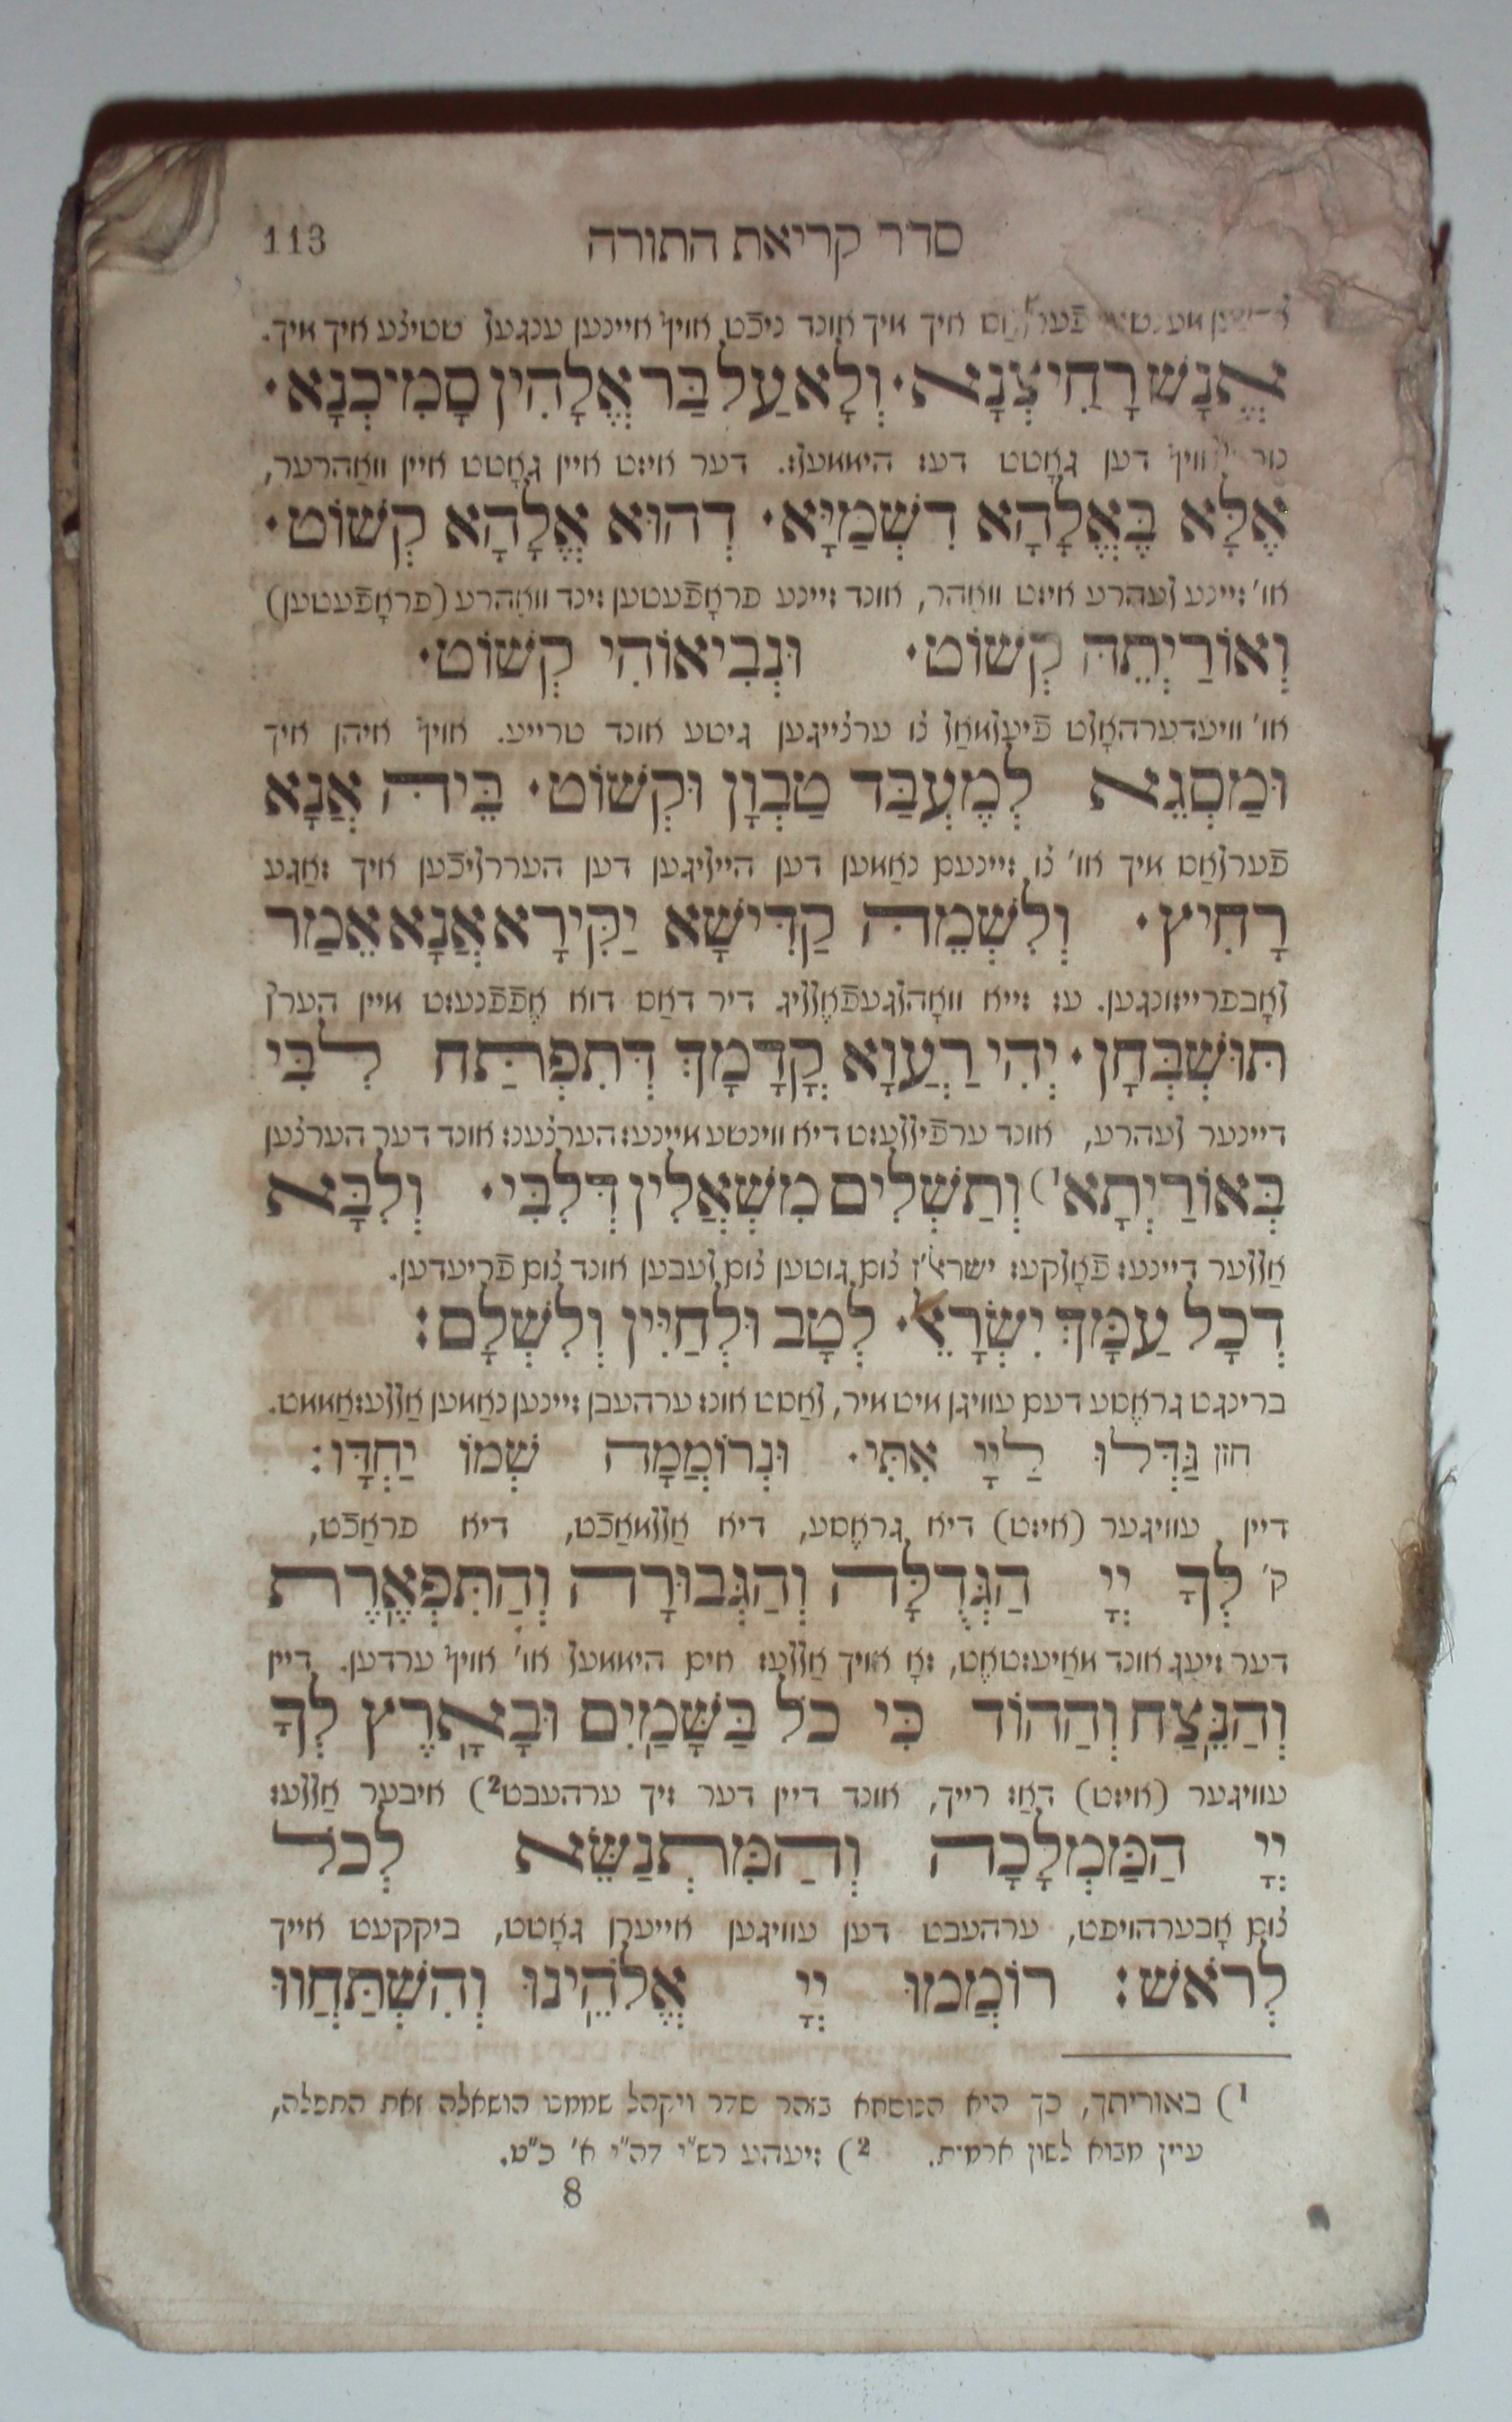 סדר קריאת התורה 113
איך מיך אונד ניכֿט אויף איינען ענגעל שטיצֿע איך מיך.
אֱנָשׁ רָחִיצְנָא· וְלָא עַל בַּר אֱלָהִין סָמִיכְנָא·
דען גאָטט דעז היממעלז. דער איזט איין גאָטט איין וואַהרער,
אֶלָּא בֶּאֱלָהָא דִשְׁמַיָּא· דְהוּא אֱלָהָא קְשׁוֹט·
או' זיינע לעהרע איזט וואהר, אונד זיינע פראָפֿעטען זינד וואהרע (פראָפֿעטען)
וְאוֹרַיְתֵהּ קְשׁוֹט· וּנְבִיאוֹהִי קְשׁוֹט·
או' וויעדערהאָלט פֿיעלמאַל צֿו ערצֿייגען גיטע אונד טרייע. אויף איהן איך
וּמַסְגֵא לְמֶעְבַּד טַבְוָן וּקְשׁוֹט· בֵּיהּ אֲנָא
פֿערלאַס מיך או' צֿו זיינעם נאַמען דען הייליגען דען העררליכֿען איך זאַגע
רָחִיץ· וְלִשְׁמֵהּ קַדִּישָׁא יַקִּירָא אֲנָא אֵמַר
לאָבפרייזונגען. עז זייא וואָהלגעפֿאֶלליג דיר דאַס דוא אֶפֿפֿנעזט מיין הערץ
תּוּשְׁבְּחָן· יְהִי רַעֲוָא קֳדָמָךְ דְּתִפְתַּח לִבִּי
דיינער לעהרע, אונד ערפֿיללעזט דיא ווינטע מיינעז הערצֿענז אונד דער הערצֿען
בְּאוֹרַיְתָא¹) וְתַשְׁלִים מִשְׁאֲלִין דְּלִבִּי· וְלִבָּא
אַללער דיינעז פֿאָלקעז ישראל'ז צֿום גוטען צֿום לעבען אונד צֿום פֿריעדען.
דְכָל עַמָּךְ יִשְׂרָאֵל· לְטָב וּלְחַיִּין וְלִשְׁלָם׃
ברינגט גראֶסע דעם עוויגן מיט מיר, לאַסט אונז ערהעבן זיינען נאַמען אַללעזאַממט.
חזן גַּדְּלוּ לַיְיָ אִתִּי· וּנְרוֹמֲמָה שְׁמוֹ יַחְדָּו׃
דיין עוויגער (איזט) דיא גראֶסע, דיא אַללמאַכֿט, דיא פראַכֿט,
ק' לְךָ יְיָ הַגְּדֻלָּה וְהַגְּבוּרָה וְהַתִּפְאֶרֶת
דער זיעג אונד מאַיעזטאֶט, זאָ אויך אַללעז אים היממעל או' אויף ערדען. דיין
וְהַנֵּצַח וְהַהוֹד כִּי כֹל בַּשָּׁמַיִם וּבָאָרֶץ לְךָ
עוויגער (איזט) דאַז רייך, אונד דיין דער זיך ערהעבט²) איבער אַללעז
יְיָ הַמַּמְלָכָה וְהַמִּתְנַשֵּׂא לְכֹל
צֿום אָבערהויפט, ערהעבט דען עוויגען אייערן גאָטט, ביקקעט אייך
לְרֹאשׁ׃ רוֹמֲמוּ יְיָ אֱלֹהֵינוּ וְהִשְׁתַּחֲווּ
¹) באוריתך, כך היא הנוסחא בזהר סדר ויקהל שממנו הושאלה זאת התפלה,
עיין מבוא לשון ארמית. ²) זיעהע רש״י דה״י א' כ״ט.
8